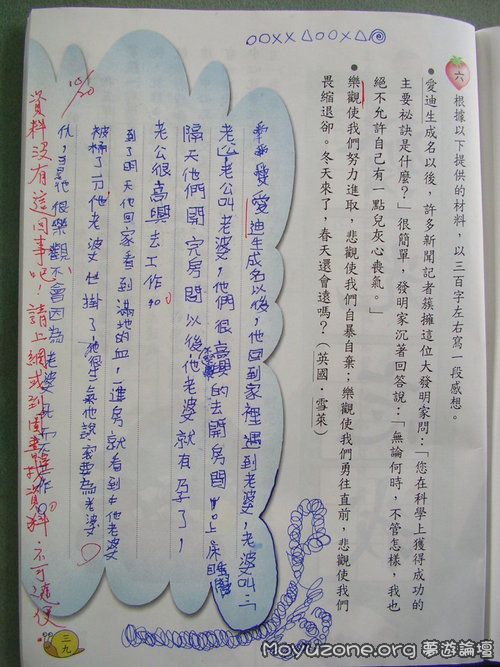 六 根據以下提供的材料，以三百字左右寫一段感想。
•愛迪生成名以後，許多新聞記者簇擁這位大發明家問：「您在科學上獲得成功的
主要祕訣是什麼？」很簡單，發明家沉著回答說：「無論何時，不管怎樣，我也
絕不允許自己有一點兒灰心喪氣。」
•樂觀使我們努力進取，悲觀使我們自暴自棄；樂觀使我們勇往直前，悲觀使我們
畏縮退卻。冬天來了，春天還會遠嗎？（英國．雪萊）
愛迪生成名以後，他回到家裡遇到老婆，老婆叫：「
老公，老公叫老婆，他們很高興的去開房間上床睡
隔天他們開完房間以後，他老婆就有孕了，
老公很高興去工作
到了明天他回家看到滿地的血，一進房就看到他老婆
被捅了一刀他老婆也掛了，他說要為老婆
仇，可是他很樂觀不會因為老婆死而
10/20
資料沒有這回事吧！請上網或到圖書找資料，不可隨便。
三九
Moyuzone.org 夢遊論壇